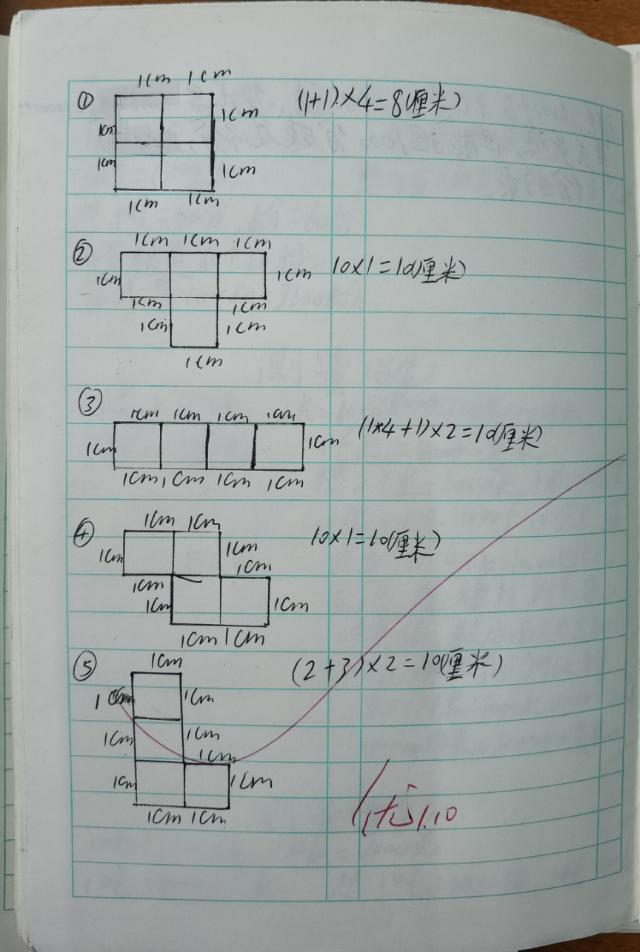 ①
1cm 1cm
1cm
1cm
1cm
1cm
1cm 1cm
(1+1)×4=8(厘米)
②
1cm 1cm 1cm
1cm
1cm
1cm 1cm
1cm 1cm
1cm
10×1=10(厘米)
③
1cm 1cm 1cm 1cm
1cm
1cm
1cm 1cm 1cm 1cm
(1×4+1)×2=10(厘米)
④
1cm 1cm
1cm
1cm
1cm
1cm
1cm
1cm
1cm 1cm
10×1=10(厘米)
⑤
1cm
1cm
1cm
1cm
1cm
1cm
1cm
1cm
1cm 1cm
(2+3)×2=10(厘米)
优 1.10